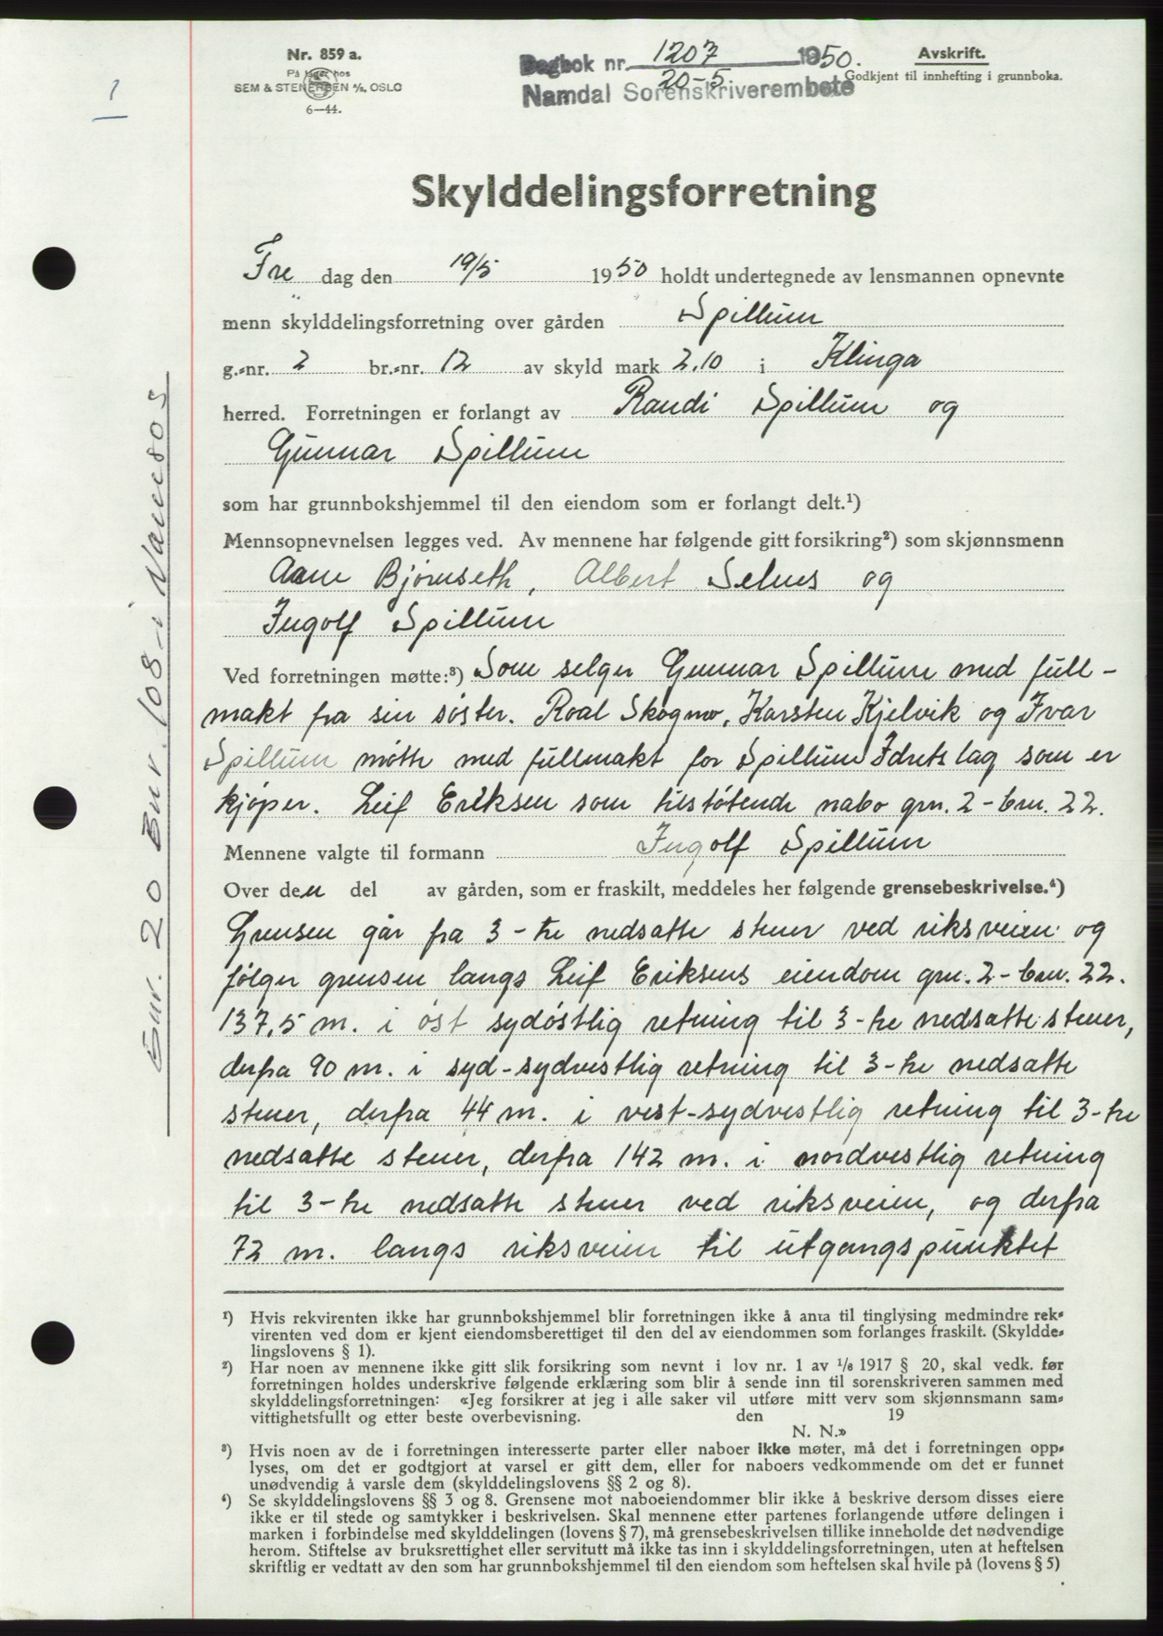 Nr. 859 a.
På lager hos
SEM & STENERSEN A/S, OSLO
6—44.
Dagbok nr. 1207 1950.
20-5
Namdal Sorenskriverembete
Avskrift.
Godkjent til innhefting i grunnboka.
1
Gnr. 20 Bnr. 108 i Namsos
Skylddelingsforretning
Fre dag den 19/5 1950 holdt undertegnede av lensmannen opnevnte
menn skylddelingsforretning over gården Spillum
g.-nr. 2 br.-nr. 12 av skyld mark 2,10 i Klinga
herred. Forretningen er forlangt av Randi Spillum og
Gunnar Spillum
som har grunnbokshjemmel til den eiendom som er forlangt delt.¹)
Mennsopnevnelsen legges ved. Av mennene har følgende gitt forsikring²) som skjønnsmenn
Arne Bjørnseth, Albert Selnes og
Ingolf Spillum
Ved forretningen møtte:³) Som selger Gunnar Spillum med full-
makt fra sin søster. Roal Skogmo, Karsten Kjelvik og Ivar
Spillum møtte med fullmakt for Spillum Idretslag som er
kjøper. Leif Eriksen som tilstøtende nabo grn. 2 - brn. 22.
Mennene valgte til formann Ingolf Spillum
Over den del av gården, som er fraskilt, meddeles her følgende grensebeskrivelse.⁴)
Grensen går fra 3 - tre nedsatte stener ved riksveien og
følger grensen langs Leif Eriksens eiendom grn. 2 - brn. 22.
137,5 m. i øst sydøstlig retning til 3 - tre nedsatte stener,
derfra 90 m. i syd-sydvestlig retning til 3 - tre nedsatte
stener, derfra 44 m. i vest-sydvestlig retning til 3 - tre
nedsatte stener, derfra 142 m. i nordvestlig retning
til 3 - tre nedsatte stener ved riksveien, og derfra
72 m. langs riksveien til utgangspunktet
¹) Hvis rekvirenten ikke har grunnbokshjemmel blir forretningen ikke å anta til tinglysing medmindre rek-
virenten ved dom er kjent eiendomsberettiget til den del av eiendommen som forlanges fraskilt. (Skyldde-
lingslovens § 1).
²) Har noen av mennene ikke gitt slik forsikring som nevnt i lov nr. 1 av 1/6 1917 § 20, skal vedk. før
forretningen holdes underskrive følgende erklæring som blir å sende inn til sorenskriveren sammen med
skylddelingsforretningen: «Jeg forsikrer at jeg i alle saker vil utføre mitt verv som skjønnsmann sam-
vittighetsfullt og etter beste overbevisning. den 19
N. N.»
³) Hvis noen av de i forretningen interesserte parter eller naboer ikke møter, må det i forretningen opp-
lyses, om det er godtgjort at varsel er gitt dem, eller for naboers vedkommende om det er funnet
unødvendig å varsle dem (skylddelingslovens §§ 2 og 8).
⁴) Se skylddelingslovens §§ 3 og 8. Grensene mot naboeiendommer blir ikke å beskrive dersom disses eiere
ikke er til stede og samtykker i beskrivelsen. Skal mennene etter partenes forlangende utføre delingen i
marken i forbindelse med skylddelingen (lovens § 7), må grensebeskrivelsen tillike inneholde det nødvendige
herom. Stiftelse av bruksrettighet eller servitutt må ikke tas inn i skylddelingsforretningen, uten at heftelsen
skriftlig er vedtatt av den som har grunnbokshjemmel til den eiendom som heftelsen skal hvile på (lovens § 5)